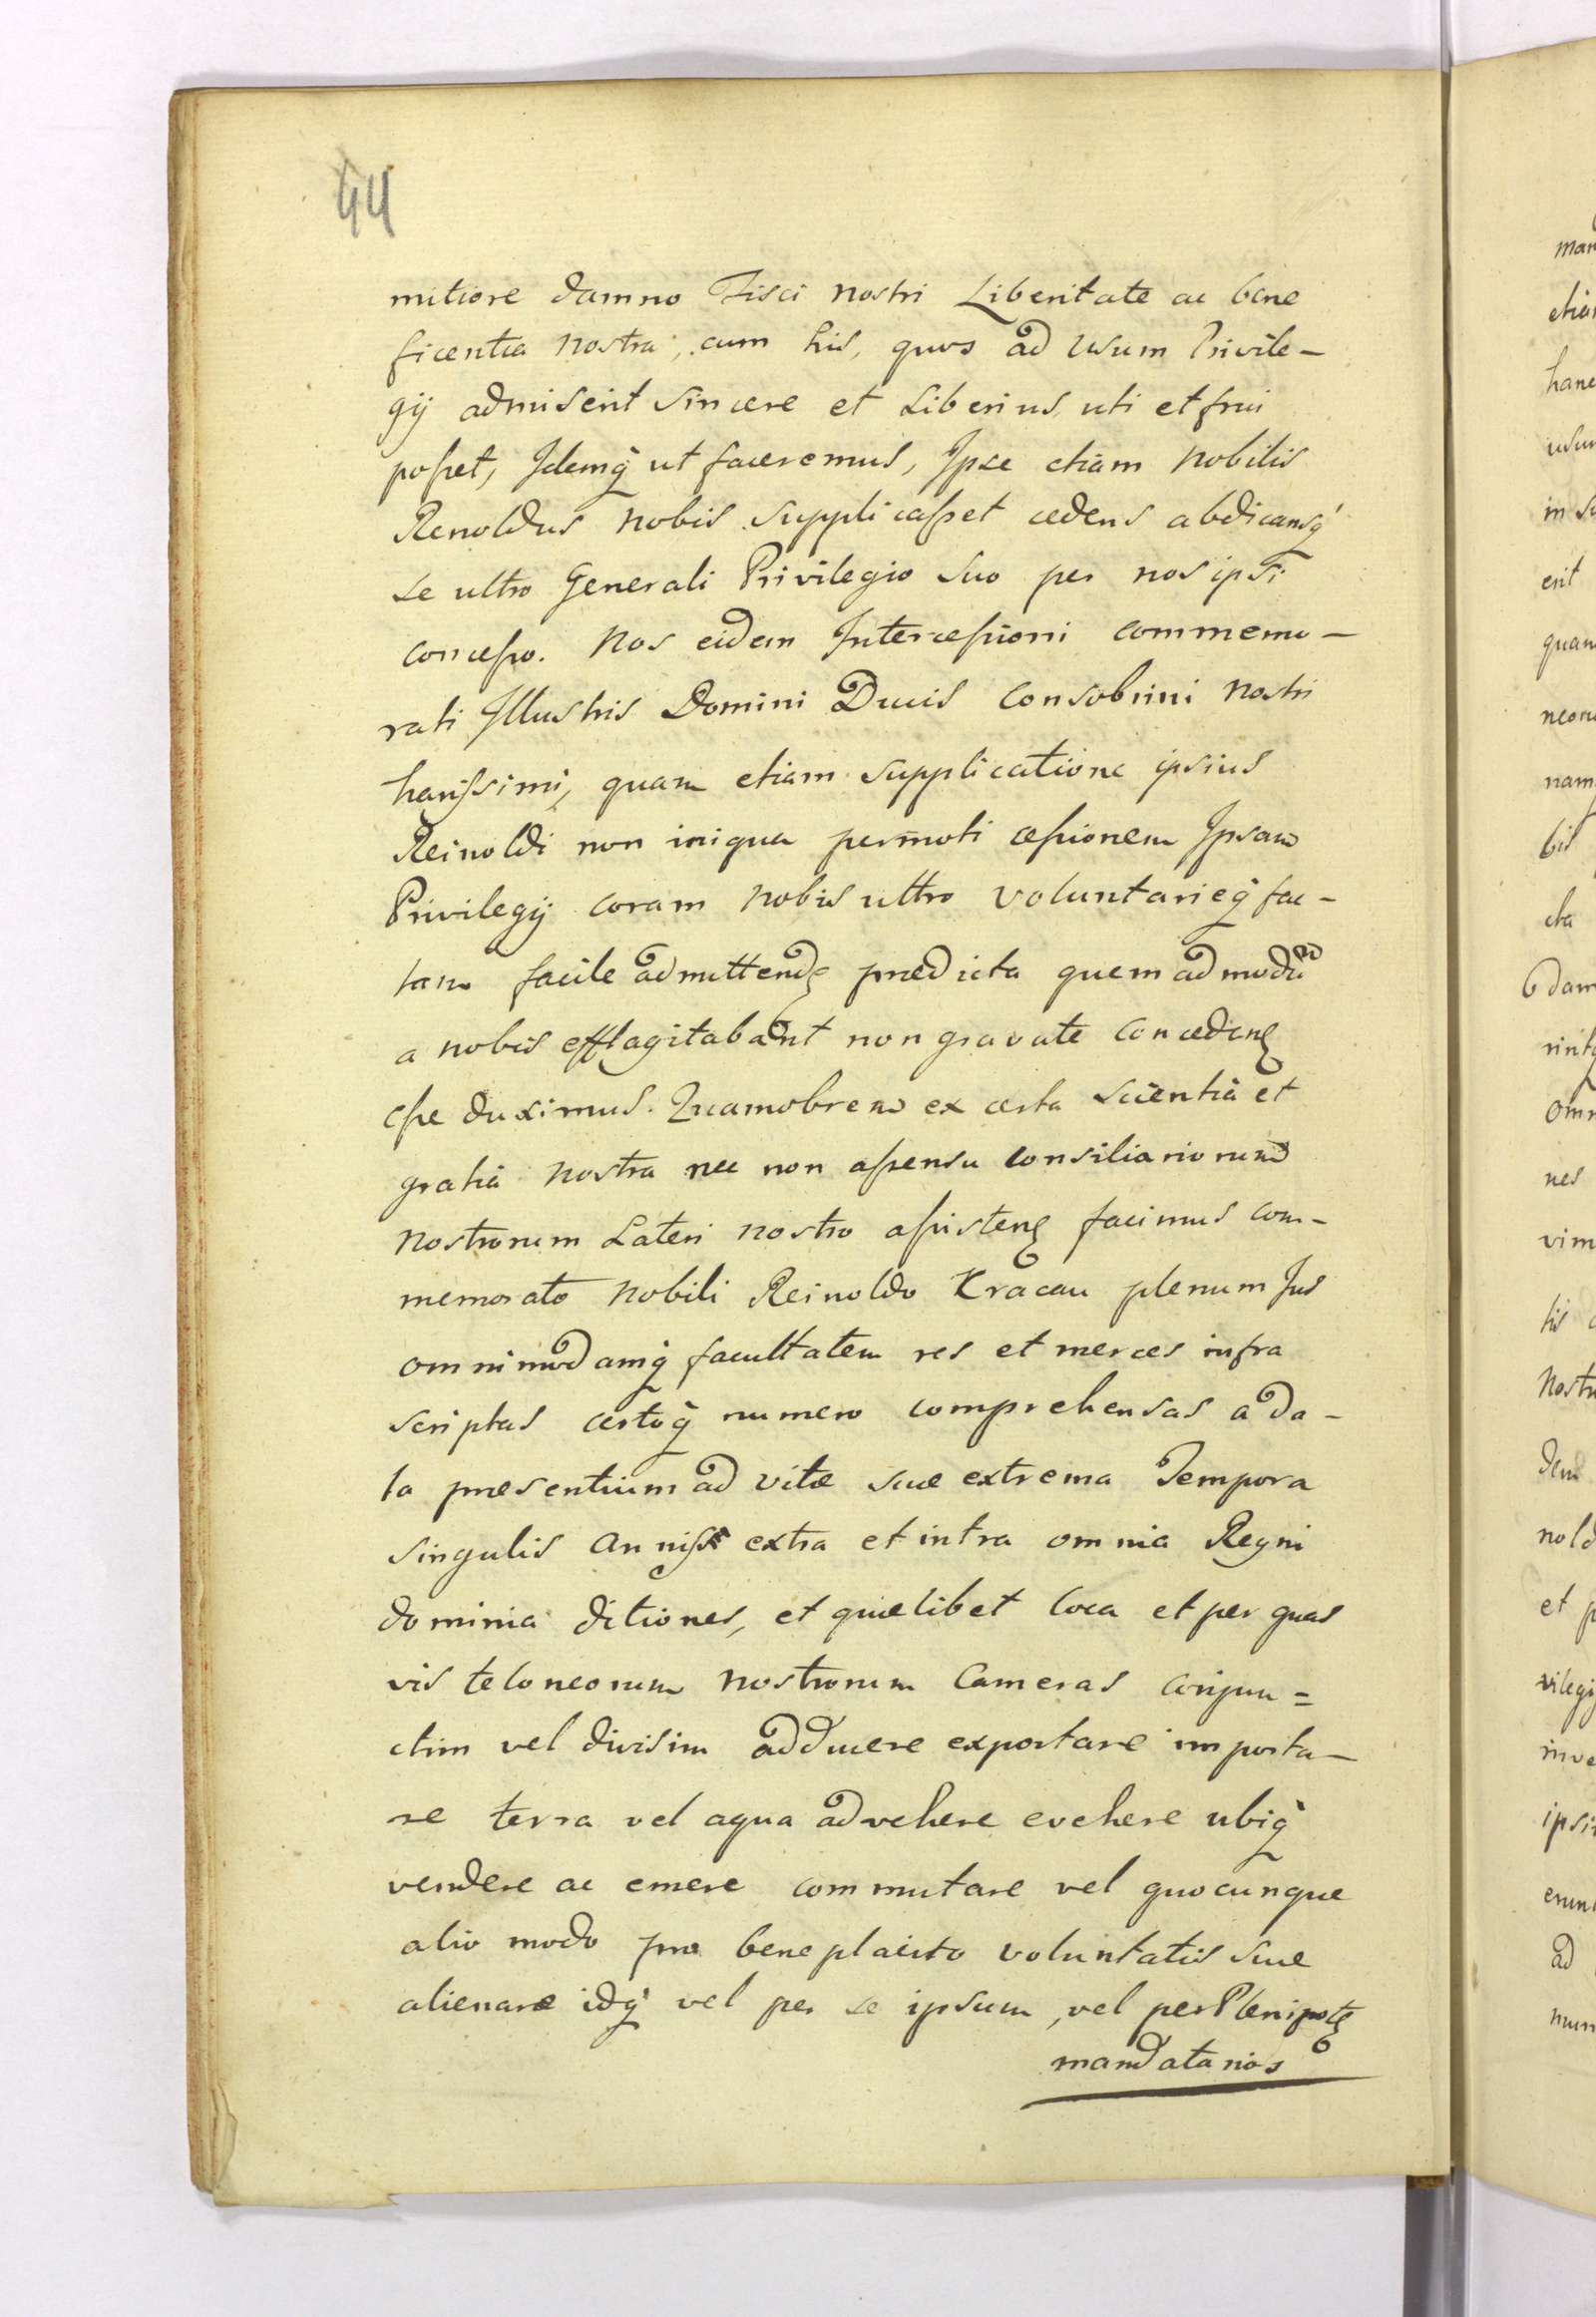 44
mitiore damno Fisci nostri Liberitate ac bene
ficentia nostra, cum his, quos ad usum Privile-
gij admiserit sincere et Liberius uti et frui
posset, Idemq' ut faceremus, Ipse etiam Nobilis
Renoldus nobis supplicasset cedens abdicansq'
se ultro Generali Privilegio suo per nos ipsi
concesso. Nos eidem Intercessioni commemo-
rati Illustris Domini Ducis Consobrini nostri
harissimi, quam etiam supplicatione ipsius
Reinoldi non iniqua permoti cessionem Ipsam
Privilegij coram nobis ultro voluntarieq' fac-
tam facile admittendę prædicta quemadmodū
a nobis efflagitabant non gravate concedenę
esse duximus. Quamobrem ex certa scientia et
gratia nostra nec non assensu consiliariorum
nostrorum Lateri nostro assistenę facimus com-
memorato Nobili Reinoldo Kracau plenum Jus
omnimodamq' facultatem res et merces infra
scriptas certoq' numero comprehensas a da-
ta præsentium ad vitæ suæ extrema Tempora
singulis annis extra et intra omnia Regni
dominia ditiones, et quælibet loca et per quas
vis teloneorum nostrorum Cameras conjun=
ctim vel divisim adducere exportare importa-
re terra vel aqua advehere evehere ubiq'
vendere ac emere commutare vel quocunque
alio modo pro beneplacito voluntatis suæ
alienare idq' vel per se ipsum, vel per Plenipotę
mandatarios
man
etia
hanc
usum
in su
erit
quam
neoru
nam
bis
cta
dam
rintq
omn
nes
vim
tis
Nostr
dem
nold
et p
vilegij
inve
ipsi
erun
ad
num